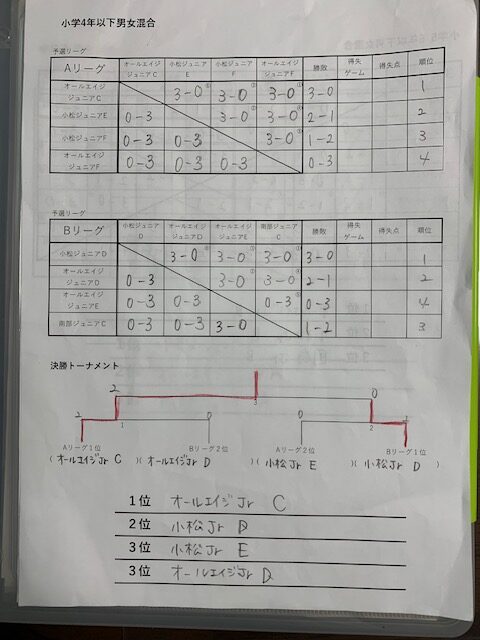 小学4年以下男女混合
予選リーグ
Aリーグ オールエイジジュニアC 小松ジュニアE 小松ジュニアF オールエイジジュニアF 勝敗 得失ゲーム 得失点 順位
オールエイジジュニアC 3-0 3-0 3-0 3-0 1
小松ジュニアE 0-3 3-0 3-0 2-1 2
小松ジュニアF 0-3 0-3 3-0 1-2 3
オールエイジジュニアF 0-3 0-3 0-3 0-3 4
予選リーグ
Bリーグ 小松ジュニアD オールエイジジュニアD オールエイジジュニアE 南部ジュニアC 勝敗 得失ゲーム 得失点 順位
小松ジュニアD 3-0 3-0 3-0 3-0 1
オールエイジジュニアD 0-3 3-0 3-0 2-1 2
オールエイジジュニアE 0-3 0-3 0-3 0-3 4
南部ジュニアC 0-3 0-3 3-0 1-2 3
決勝トーナメント
2 3 0
2 1 0 0 2
Aリーグ1位 Bリーグ2位 Aリーグ2位 Bリーグ1位
(オールエイジJr C)(オールエイジJr D)(小松Jr E)(小松Jr D)
1位 オールエイジJr C
2位 小松Jr D
3位 小松Jr E
3位 オールエイジJr D